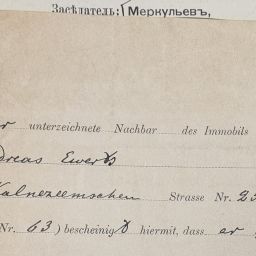 Засѣдатель: Меркульевъ,
unterzeichnete Nachbar des Immobils
Ewerts
Kalnezeemschen Strasse Nr. 23
Nr. 63) bescheinigt hiermit, dass er